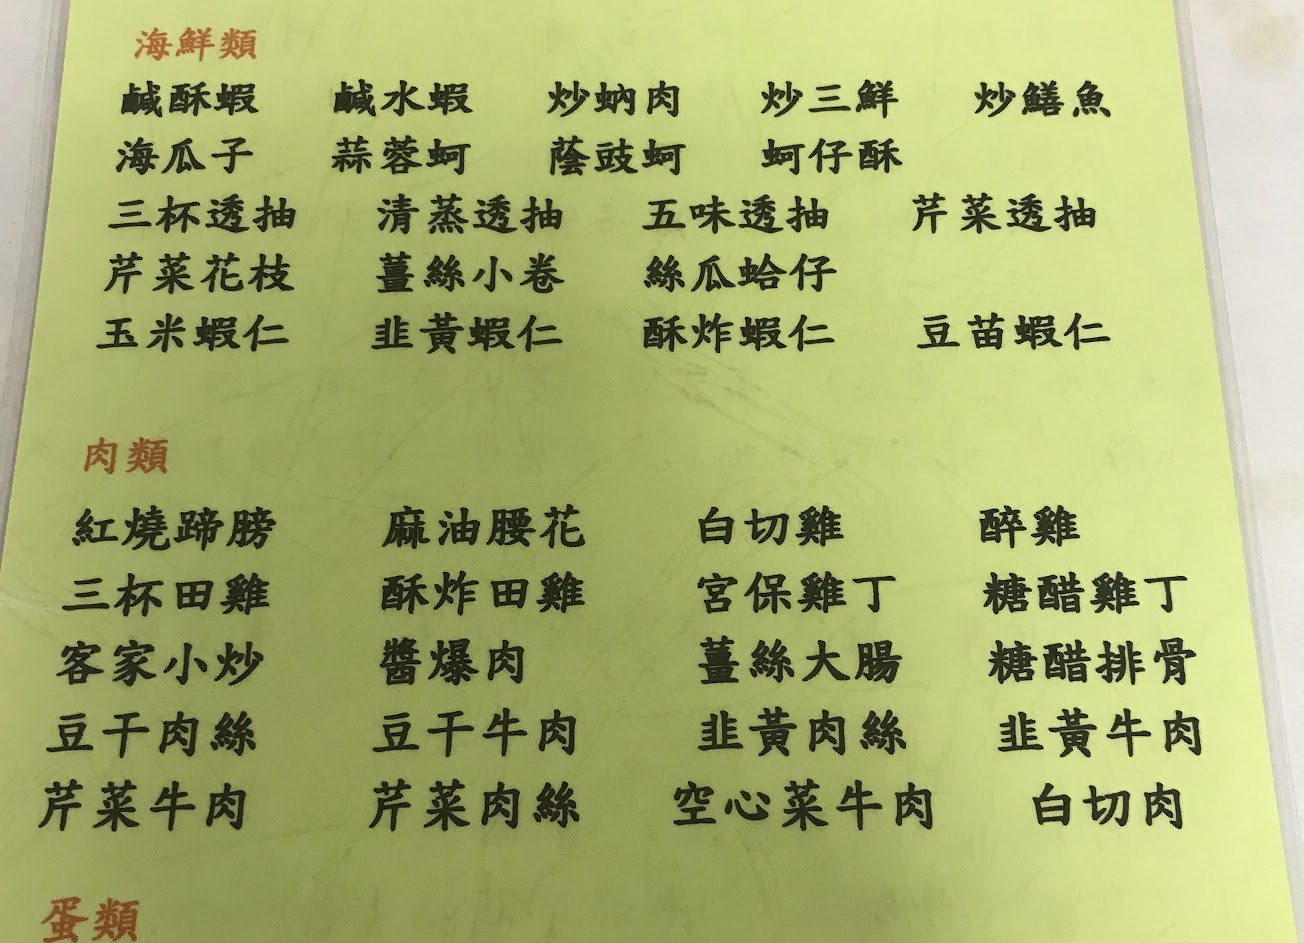 海鮮類
鹹酥蝦 鹹水蝦 炒蚋肉 炒三鮮 炒鱔魚
海瓜子 蒜蓉蚵 蔭豉蚵 蚵仔酥
三杯透抽 清蒸透抽 五味透抽 芹菜透抽
芹菜花枝 薑絲小卷 絲瓜蛤仔
玉米蝦仁 韭黃蝦仁 酥炸蝦仁 豆苗蝦仁
肉類
紅燒蹄膀 麻油腰花 白切雞 醉雞
三杯田雞 酥炸田雞 宮保雞丁 糖醋雞丁
客家小炒 醬爆肉 薑絲大腸 糖醋排骨
豆干肉絲 豆干牛肉 韭黃肉絲 韭黃牛肉
芹菜牛肉 芹菜肉絲 空心菜牛肉 白切肉
蛋類